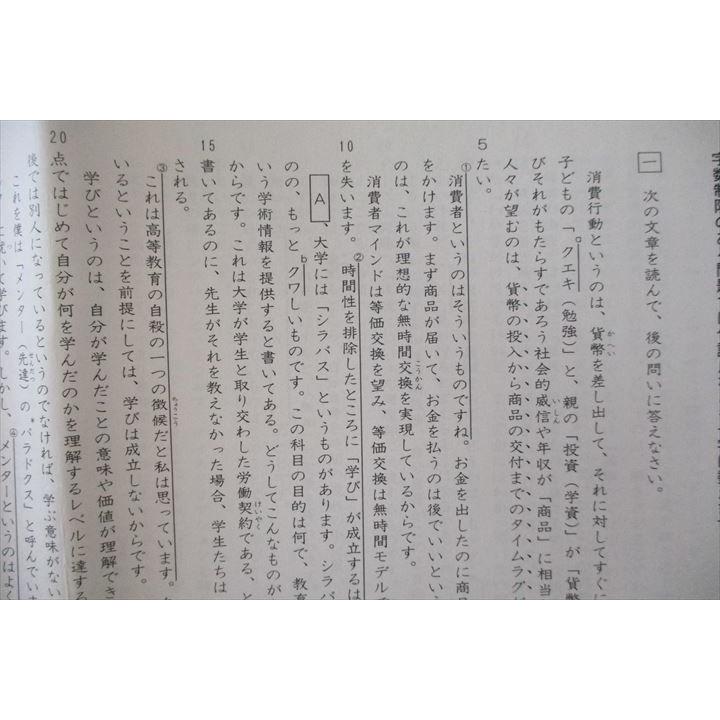 一 次の文章を読んで、後の問いに答えなさい。
消費行動というのは、貨幣を差し出して、それに対してすぐに
子どもの「aクエキ（勉強）」と、親の「投資（学資）」が「貨幣
びそれがもたらすであろう社会的威信や年収が「商品」に相当
人々が望むのは、貨幣の投入から商品の交付までのタイムラグ
5 たい。
①消費者というのはそういうものですね。お金を出したのに商品
をかけます。まず商品が届いて、お金を払うのは後でいいとい
のは、これが理想的な無時間交換を実現しているからです。
消費者マインドは等価交換を望み、等価交換は無時間モデル
10 を失います。②時間性を排除したところに「学び」が成立するは
A、大学には「シラバス」というものがあります。シラ
のの、もっとbクワしいものです。この科目の目的は何で、教
いう学術情報を提供すると書いてある。どうしてこんなものが
からです。これは大学が学生と取り交わした労働契約である、
15 書いてあるのに、先生がそれを教えなかった場合、学生たちは
される。
③これは高等教育の自殺の一つの徴候だと私は思っています。
いるということを前提にしては、学びは成立しないからです。
学びというのは、自分が学んだことの意味や価値が理解でき
20 点ではじめて自分が何を学んだのかを理解するレベルに達する
後では別人になっているというのでなければ、学ぶ意味がない
これを僕は「メンター（先達）の＊パラドクス」と呼んでいま
に就いて学びます。しかし、④メンターというのはよく